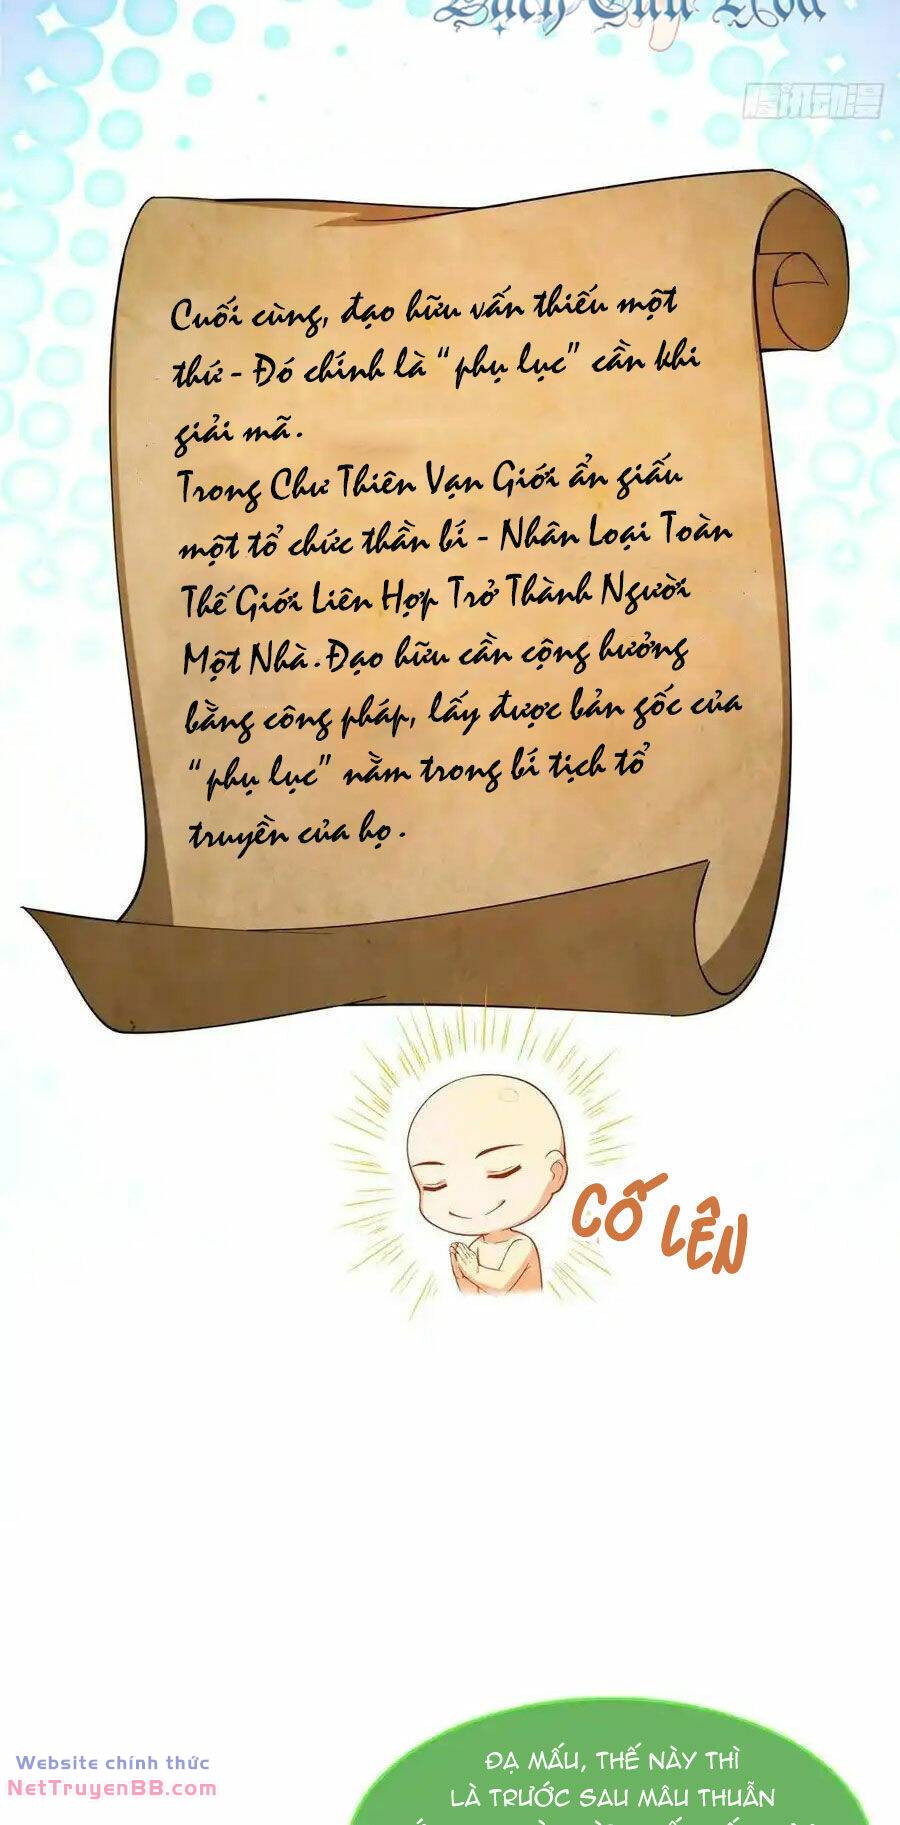 腾讯动漫
Cuối cùng, đạo hữu vẫn thiếu một
thứ - Đó chính là "phụ lục" cần khi
giải mã.
Trong Chư Thiên Vạn Giới ẩn giấu
một tổ chức thần bí - Nhân Loại Toàn
Thế Giới Liên Hợp Trở Thành Người
Một Nhà. Đạo hữu cần cộng hưởng
bằng công pháp, lấy được bản gốc của
"phụ lục" nằm trong bí tịch tổ
truyền của họ.
CỐ LÊN
Website chính thức
NetTruyenBB.com
ĐẠ MẤU, THẾ NÀY THÌ
LÀ TRƯỚC SAU MÂU THUẪN